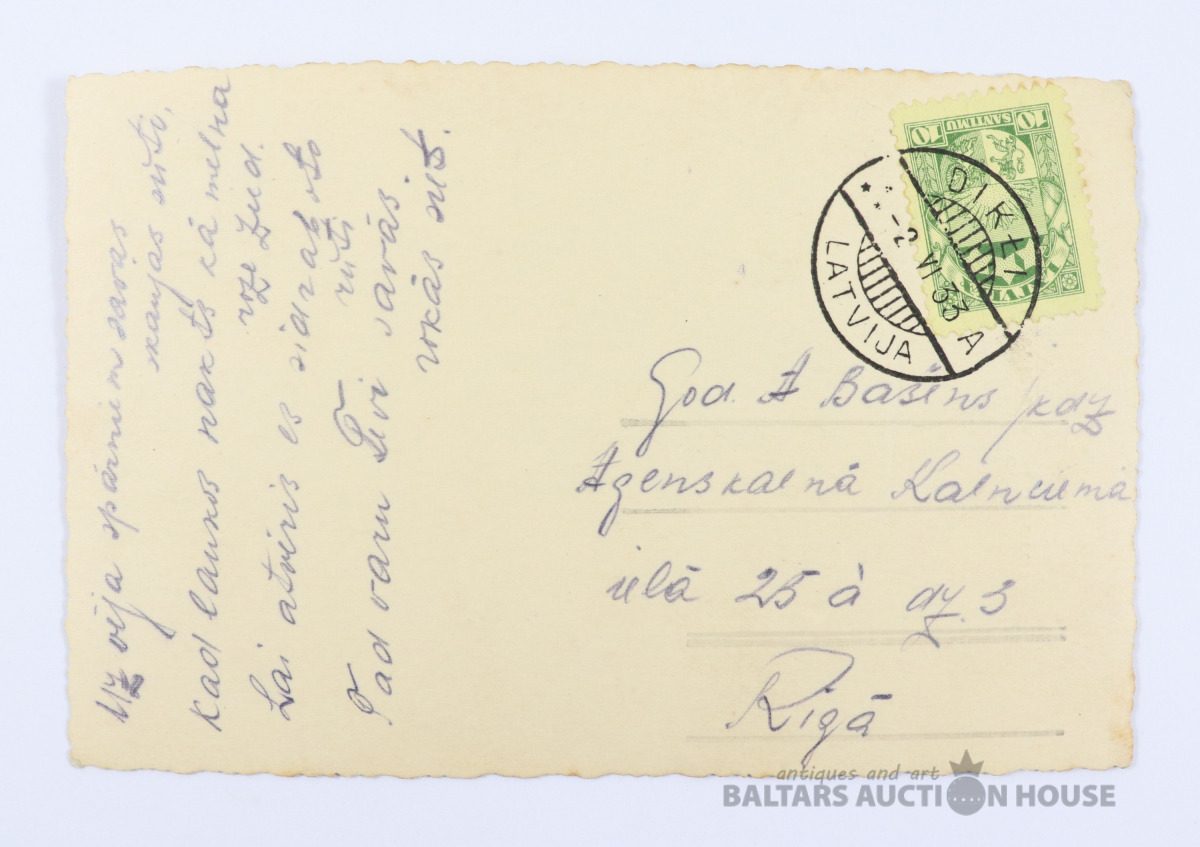 Uz vēja spārniem savās
skaņas sūti,
kad launos nakts kā melna
roze zied.
Lai atviris es sidraboto
rūti
Tad varu Tevi savās
rokās siet.
10 SANTIMU 10
DIKĻI
-2 VI 33
LATVIJA A
God. A Bašēns kdz
Agenskalnā Kalnciema
ielā 25 à dz. 3
Rīgā
antiques and art
BALTARS AUCTION HOUSE